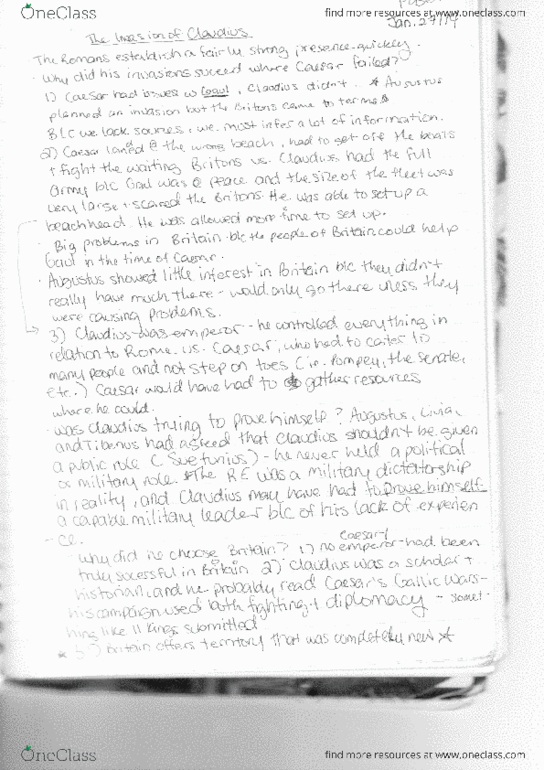 OneClass
find more resources at www.oneclass.com
Jan. 29/14
The Invasion of Claudius
The Romans establish a fairly strong presence quickly.
· Why did his invasions succeed where Caesar failed?
1) Caesar had issues w Gaul, Claudius didn't. * Augustus
planned an invasion but the Britons came to terms
B/c we lack sources, we must infer a lot of information.
2) Caesar landed @ the wrong beach, had to get off the boats
+ fight the waiting Britons vs. Claudius had the full
army b/c Gaul was @ peace and the size of the fleet was
very large + scared the Britons. He was able to set up a
beachhead. He was allowed more time to set up.
· Big problems in Britain b/c the people of Britain could help
Gaul in the time of Caesar.
· Augustus showed little interest in Britain b/c they didn't
really have much there - would only go there unless they
were causing problems.
3) Claudius was emperor - he controlled everything in
relation to Rome vs. Caesar, who had to cater to
many people and not step on toes (ie. Pompey, the senate,
etc.) Caesar would have had to gather resources
where he could.
· was Claudius trying to prove himself? Augustus, Livia,
and Tiberius had agreed that Claudius shouldn't be given
a public role (Suetonius) - he never held a political
or military role. *The RE was a military dictatorship
in reality, and Claudius may have had to prove himself
a capable military leader b/c of his lack of experien
-ce.
· Why did he choose Britain? 1) no Caesar/emperor had been
truly sucessful in Britain 2) Claudius was a scholar +
historian, and he probably read Caesar's Gallic Wars -
his campaign used both fighting + diplomacy - somet
hing like 11 kings submitted
* 3) Britain offers territory that was completely new *
OneClass
find more resources at www.oneclass.com